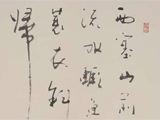 西塞山前
流水鱖魚
蓑衣
歸